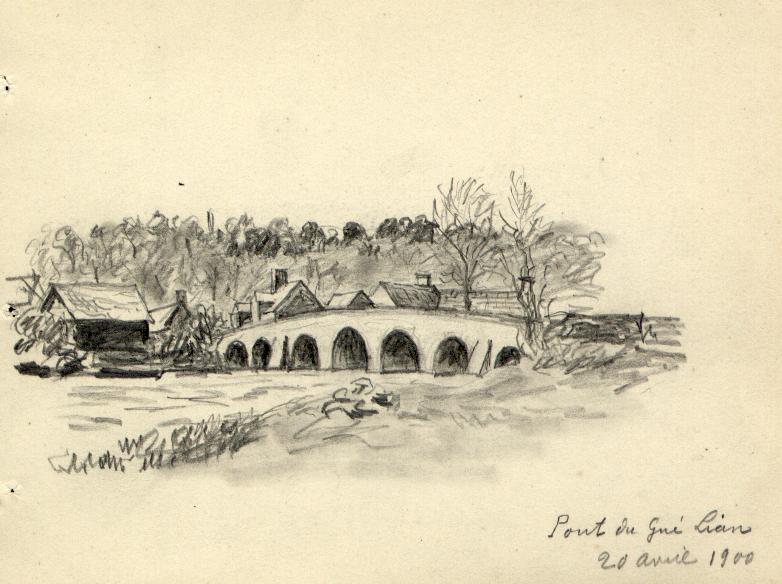 Pont du Gué Lian
20 avril 1900